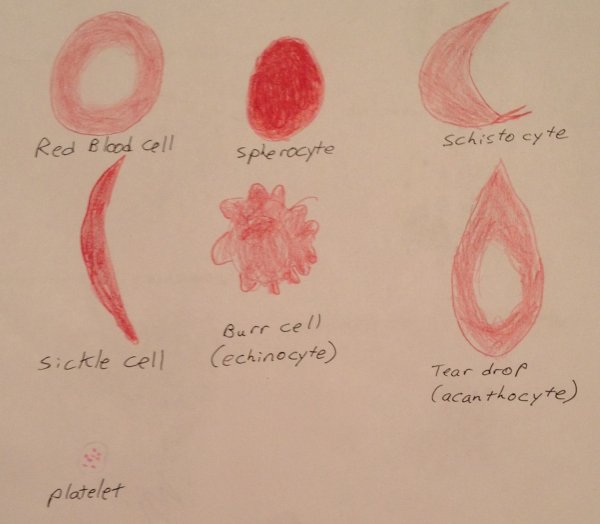 Red Blood cell
Splerocyte
Schistocyte
Sickle cell
Burr cell
(echinocyte)
Tear drop
(acanthocyte)
platelet